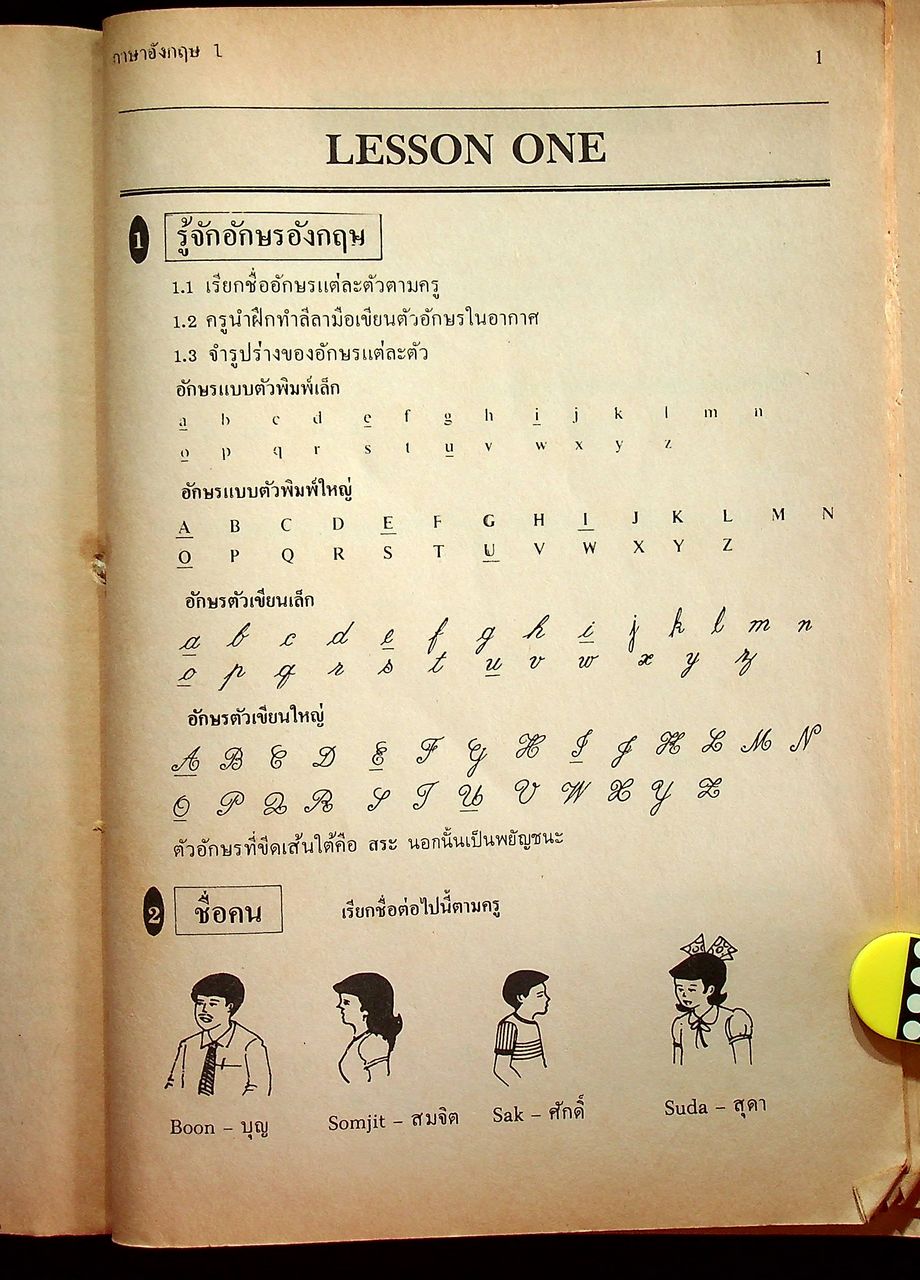 ภาษาอังกฤษ 1
1
LESSON ONE
1 รู้จักอักษรอังกฤษ
1.1 เรียกชื่ออักษรแต่ละตัวตามครู
1.2 ครูนำฝึกทำลีลามือเขียนตัวอักษรในอากาศ
1.3 จำรูปร่างของอักษรแต่ละตัว
อักษรแบบตัวพิมพ์เล็ก
a b c d e f g h i j k l m n
o p q r s t u v w x y z
อักษรแบบตัวพิมพ์ใหญ่
A B C D E F G H I J K L M N
O P Q R S T U V W X Y Z
อักษรตัวเขียนเล็ก
a b c d e f g h i j k l m n
o p q r s t u v w x y z
อักษรตัวเขียนใหญ่
A B C D E F G H I J K L M N
O P Q R S T U V W X Y Z
ตัวอักษรที่ขีดเส้นใต้คือ สระ นอกนั้นเป็นพยัญชนะ
2 ชื่อคน เรียกชื่อต่อไปนี้ตามครู
Boon – บุญ Somjit – สมจิต Sak – ศักดิ์ Suda – สุดา